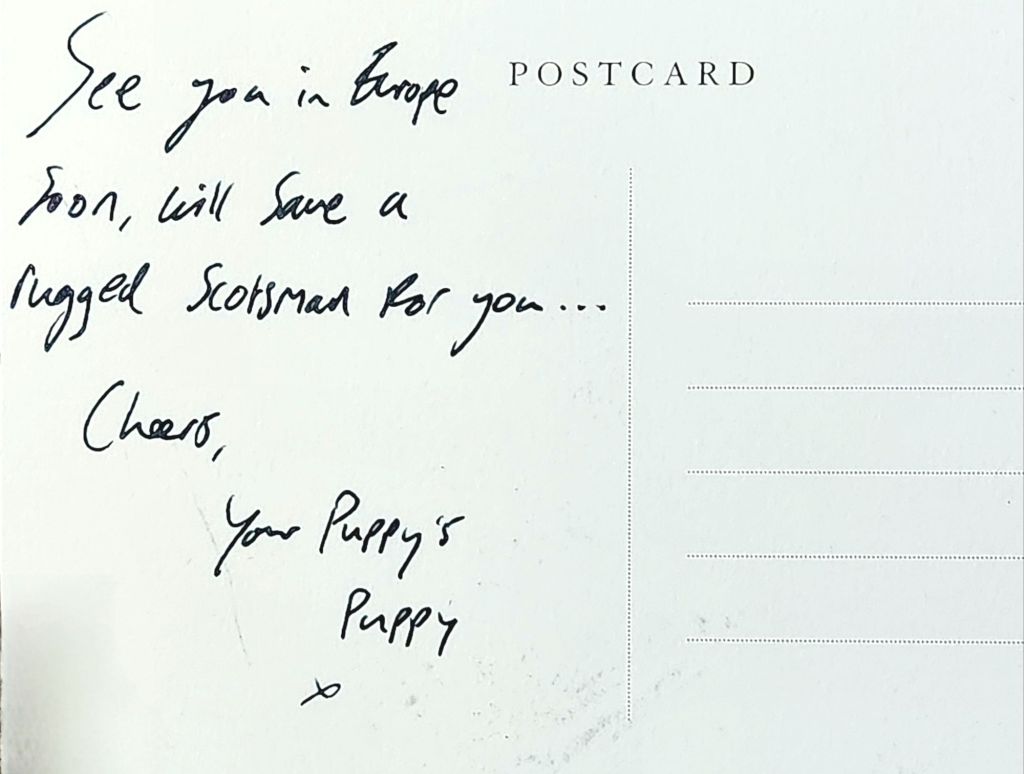 See you in Europe
POSTCARD
Soon, will save a
rugged Scotsman for you...
Cheers,
Your Puppy's
Puppy
x